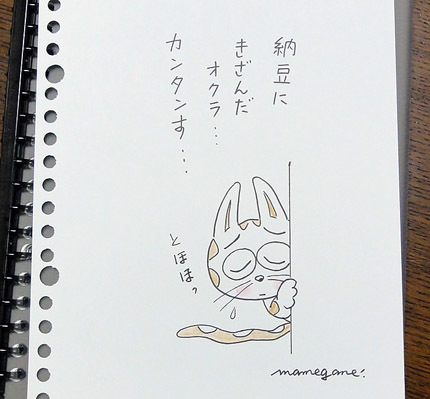 納豆に
きざんだ
オクラ…
カンタンす…
とほほ?
mamegane!